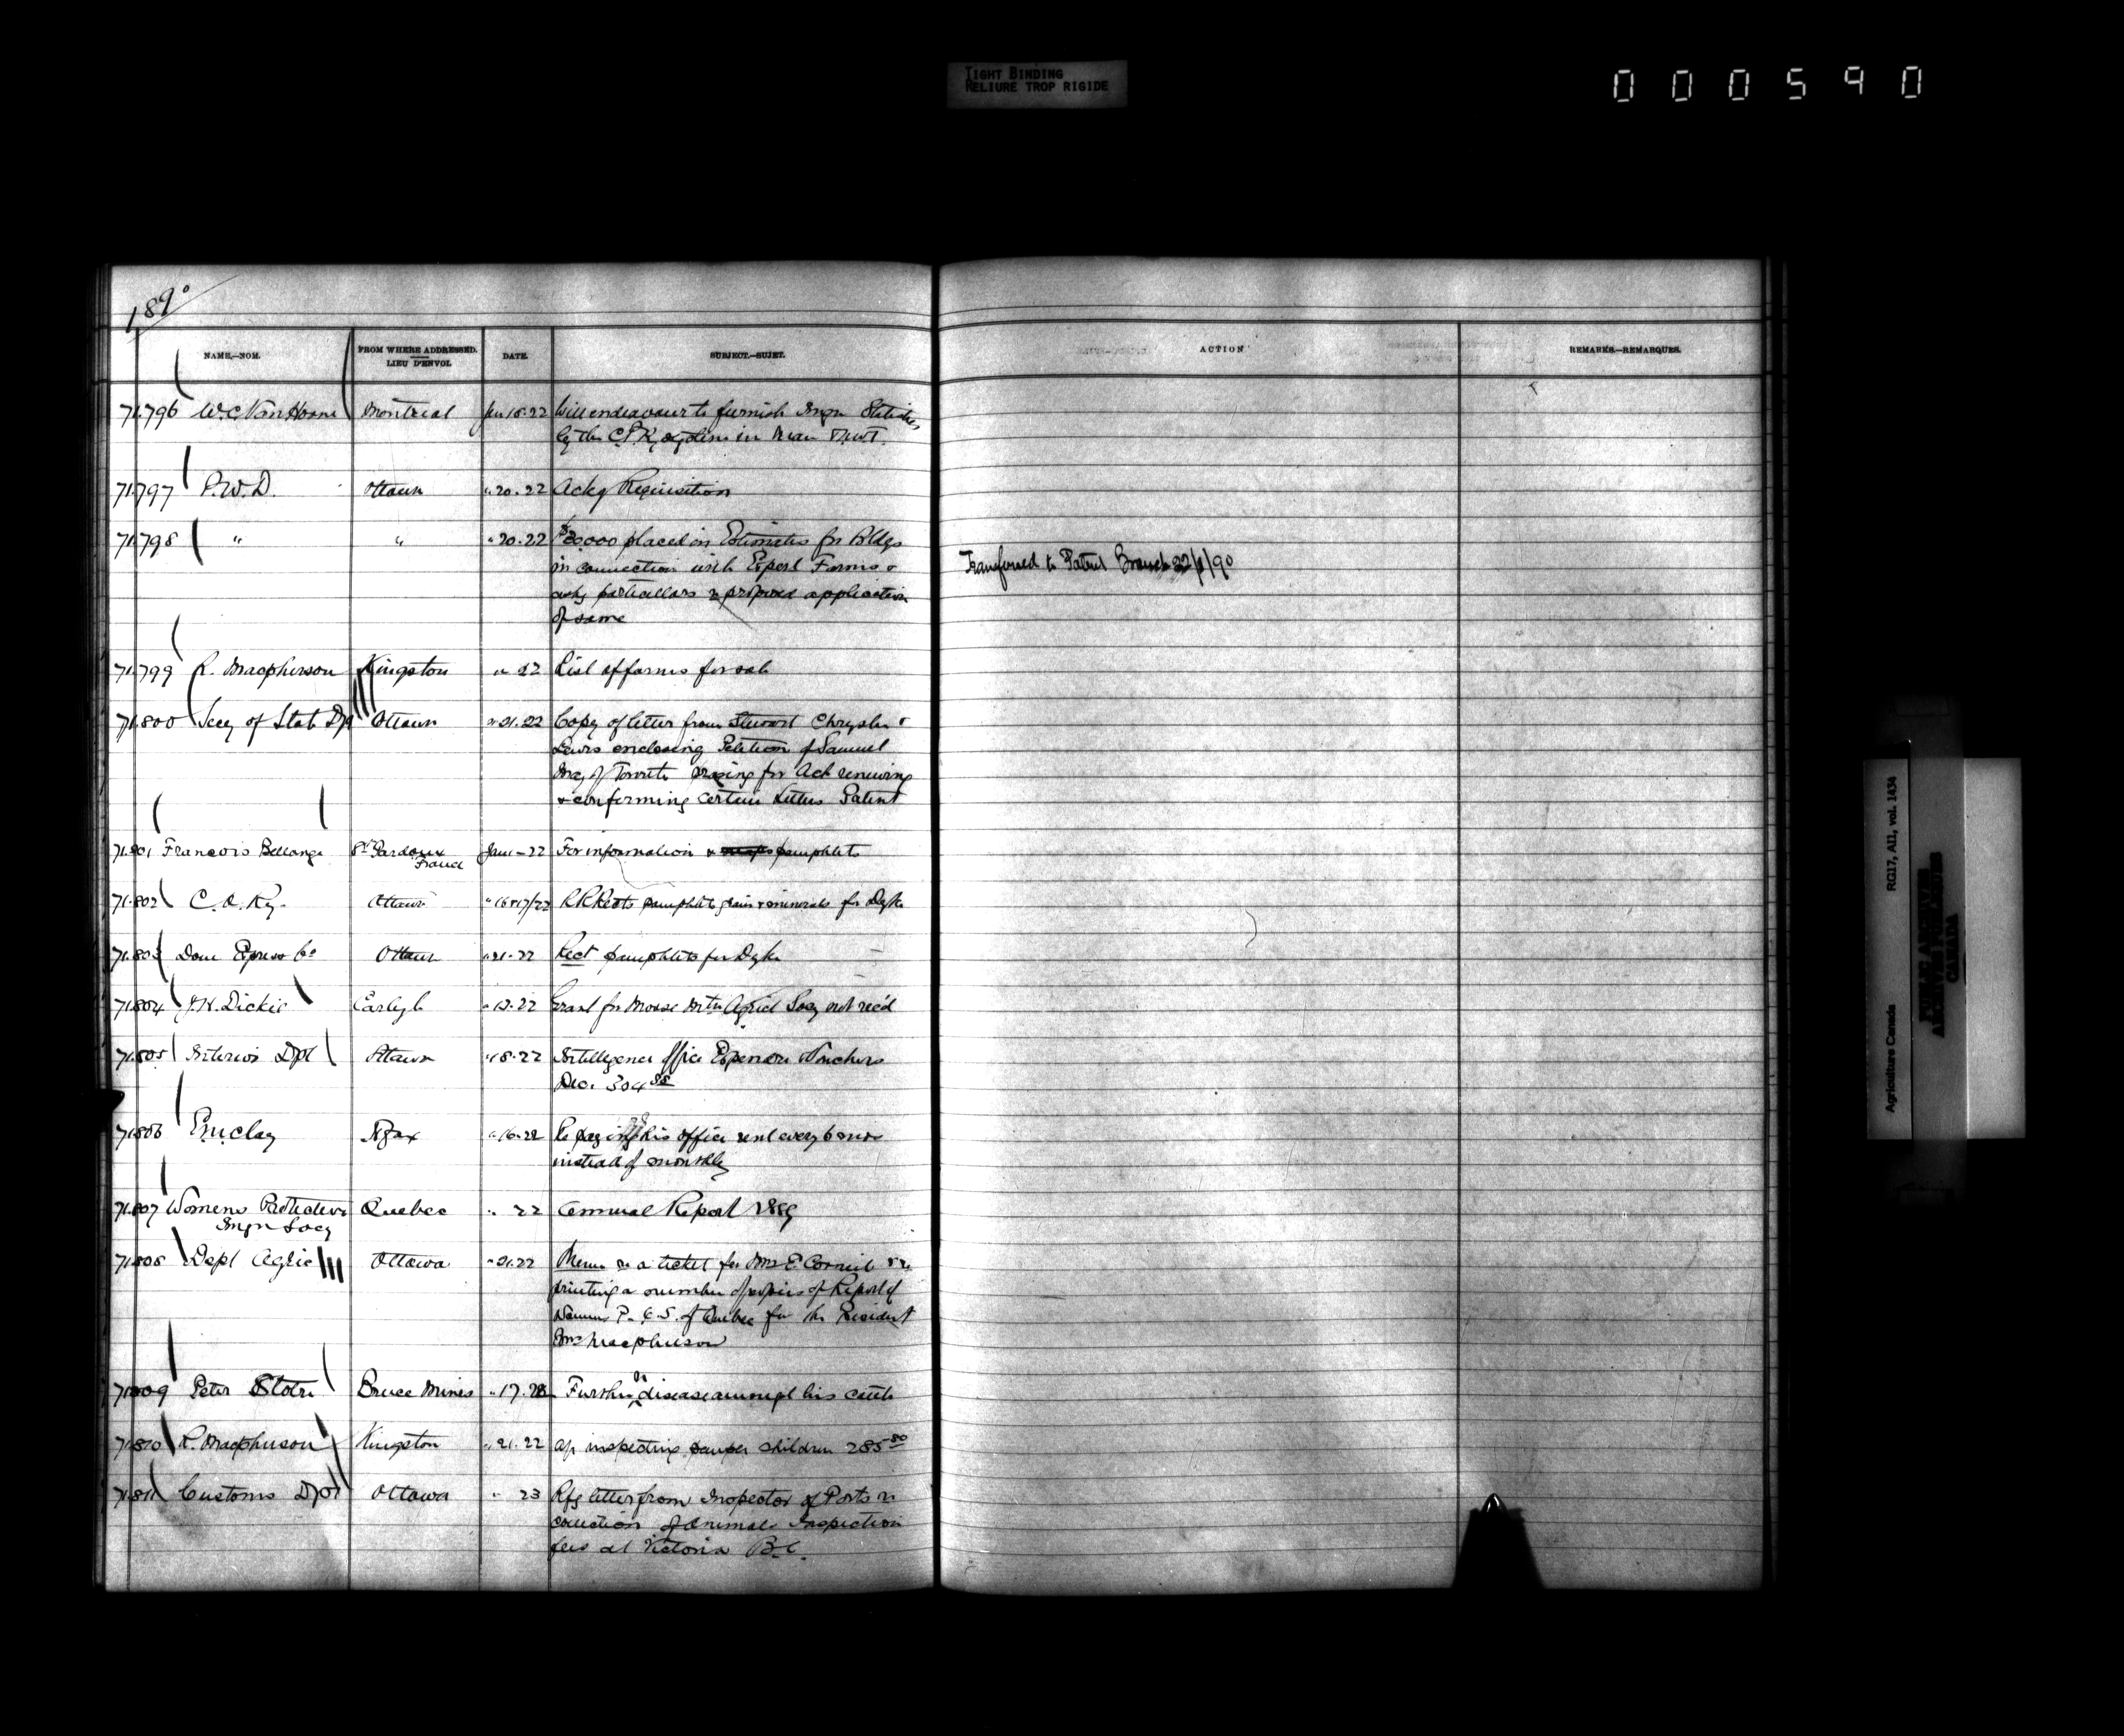 TIGHT BINDING
RELIURE TROP RIGIDE
000590
1890
NAME.—NOM. FROM WHERE ADDRESSED. LIEU D'ENVOI. DATE. SUBJECT.—SUJET. ACTION REMARKS.—REMARQUES.
71.796 W.C. Van Horne Montreal Jan 18-22 Will endeavour to furnish Imgn Statistics
by the C.P.R. in Man & N.W.T.
71797 P.W.D. Ottawa " 20-22 Ackg Requisition
71798 " " " 20.22 $20,000 placed in Estimates for Bldgs
in connection with Experl Farms &
asks particulars & proposed application
of same
Transferred to Patent Branch 22/1/90
71799 R. Macpherson Kingston " 22 List of farms for sale
71.800 Secy of State Dpt Ottawa " 21.22 Copy of letter from Stewart Chrysler &
Lewis enclosing Petition of Samuel
May of Toronto praying for Act renewing
& confirming certain Letters Patent
71.801 Francois Bellange St Pardoux France Jan 1-22 For information & pamphlets
71.802 C.A. Ry. Ottawa " 16&17/22 pamphlets grain & minerals for Dyke
71.803 Dom Express Co Ottawa " 21-22 Rect pamphlets for Dyke
71804 J.H. Dickie " 22 Grant for Moose Mtn Agricl Socy not rec'd
71.805 Interior Dpt Ottawa " 18-22 Intelligence Office Expenses Vouchers
Dec. 304
71806 E.M. Clay Hfax " 16-22 Re paying his office rent every 6 mos
instead of monthly
71.807 Womens Protective Quebec " 22 Annual Report 1889
Imgn Socy
71808 Dept Agric Ottawa " 21.22 Memo re a ticket for Mrs E. Corneil & re
printing a number of copies of Report of
P. I. S. of Quebec for the President
Mrs Macpherson
71809 Peter Stobie Bruce Mines " 17.22 Further on disease amongst his cattle
71810 R. Macpherson Kingston " 21.22 a/c inspecting pauper children 285.50
71.811 Customs Dpt Ottawa " 23 Rfg letter from Inspector of Ports re
collection of Animals Inspection
fees at Victoria B.C.
Agriculture Canada RG17, A11, vol. 1434
PUBLIC ARCHIVES
ARCHIVES PUBLIQUES
CANADA